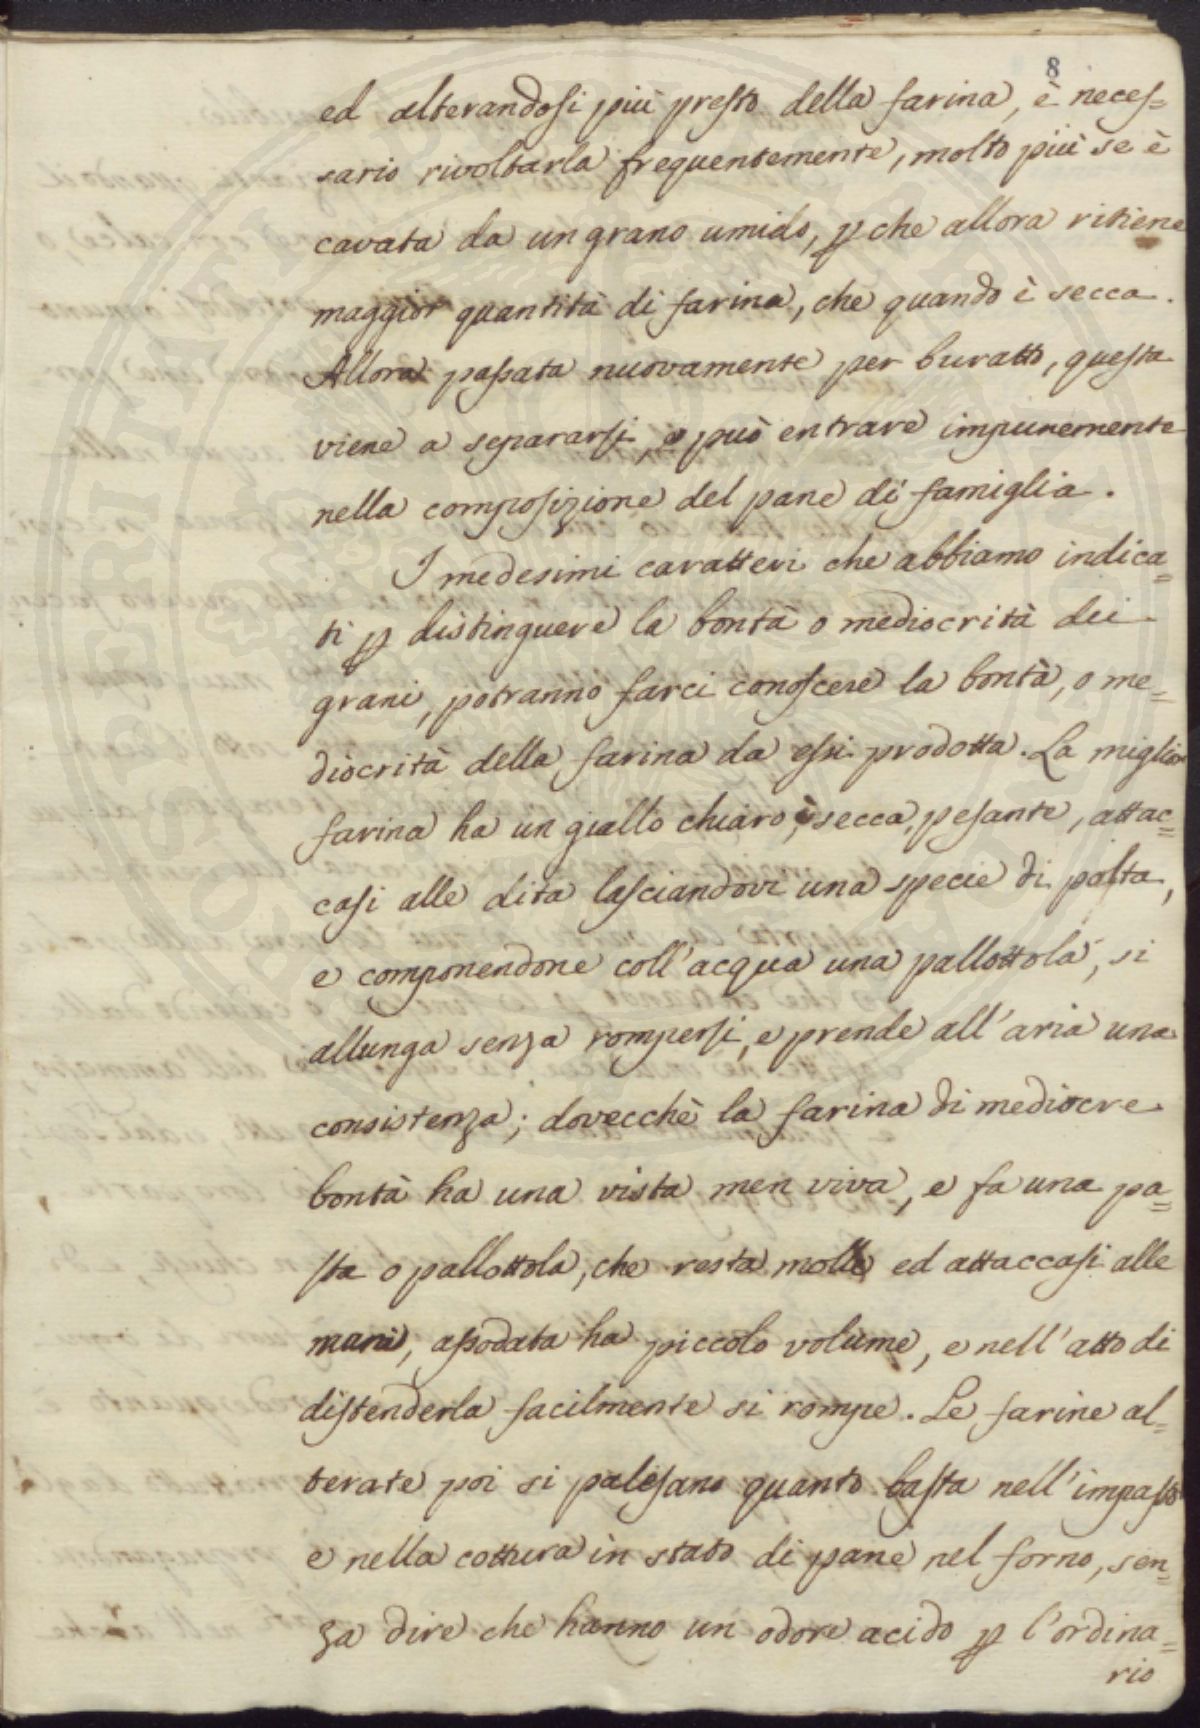 8
ed alterandosi più presto della farina, è neces-
sario rivoltarla frequentemente, molto più se è
cavata da un grano umido, p che allora ritiene
maggior quantità di farina, che quando è secca.
Allora passata nuovamente per buratto, questa
viene a separarsi, e può entrare impunemente
nella composizione del pane di famiglia.
I medesimi caratteri che abbiamo indica=
ti p distinguere la bontà o mediocrità dei
grani, potranno farci conoscere la bontà, o me=
diocrità della farina da essi prodotta. La miglior
farina ha un giallo chiaro, è secca, pesante, attac=
casi alle dita lasciandovi una specie di pasta,
e componendone coll'acqua una pallottola, si
allunga senza rompersi, e prende all'aria una
consistenza; dovecchè la farina di mediocre
bontà ha una vista men viva, e fa una pa=
sta o pallottola, che resta molle ed attaccasi alle
mani, assodata ha piccolo volume, e nell'atto di
distenderla facilmente si rompe. Le farine al=
terate poi si palesano quanto basta nell'impasto
e nella cottura in stato di pane nel forno, sen=
za dire che hanno un odore acido p l'ordina=
rio